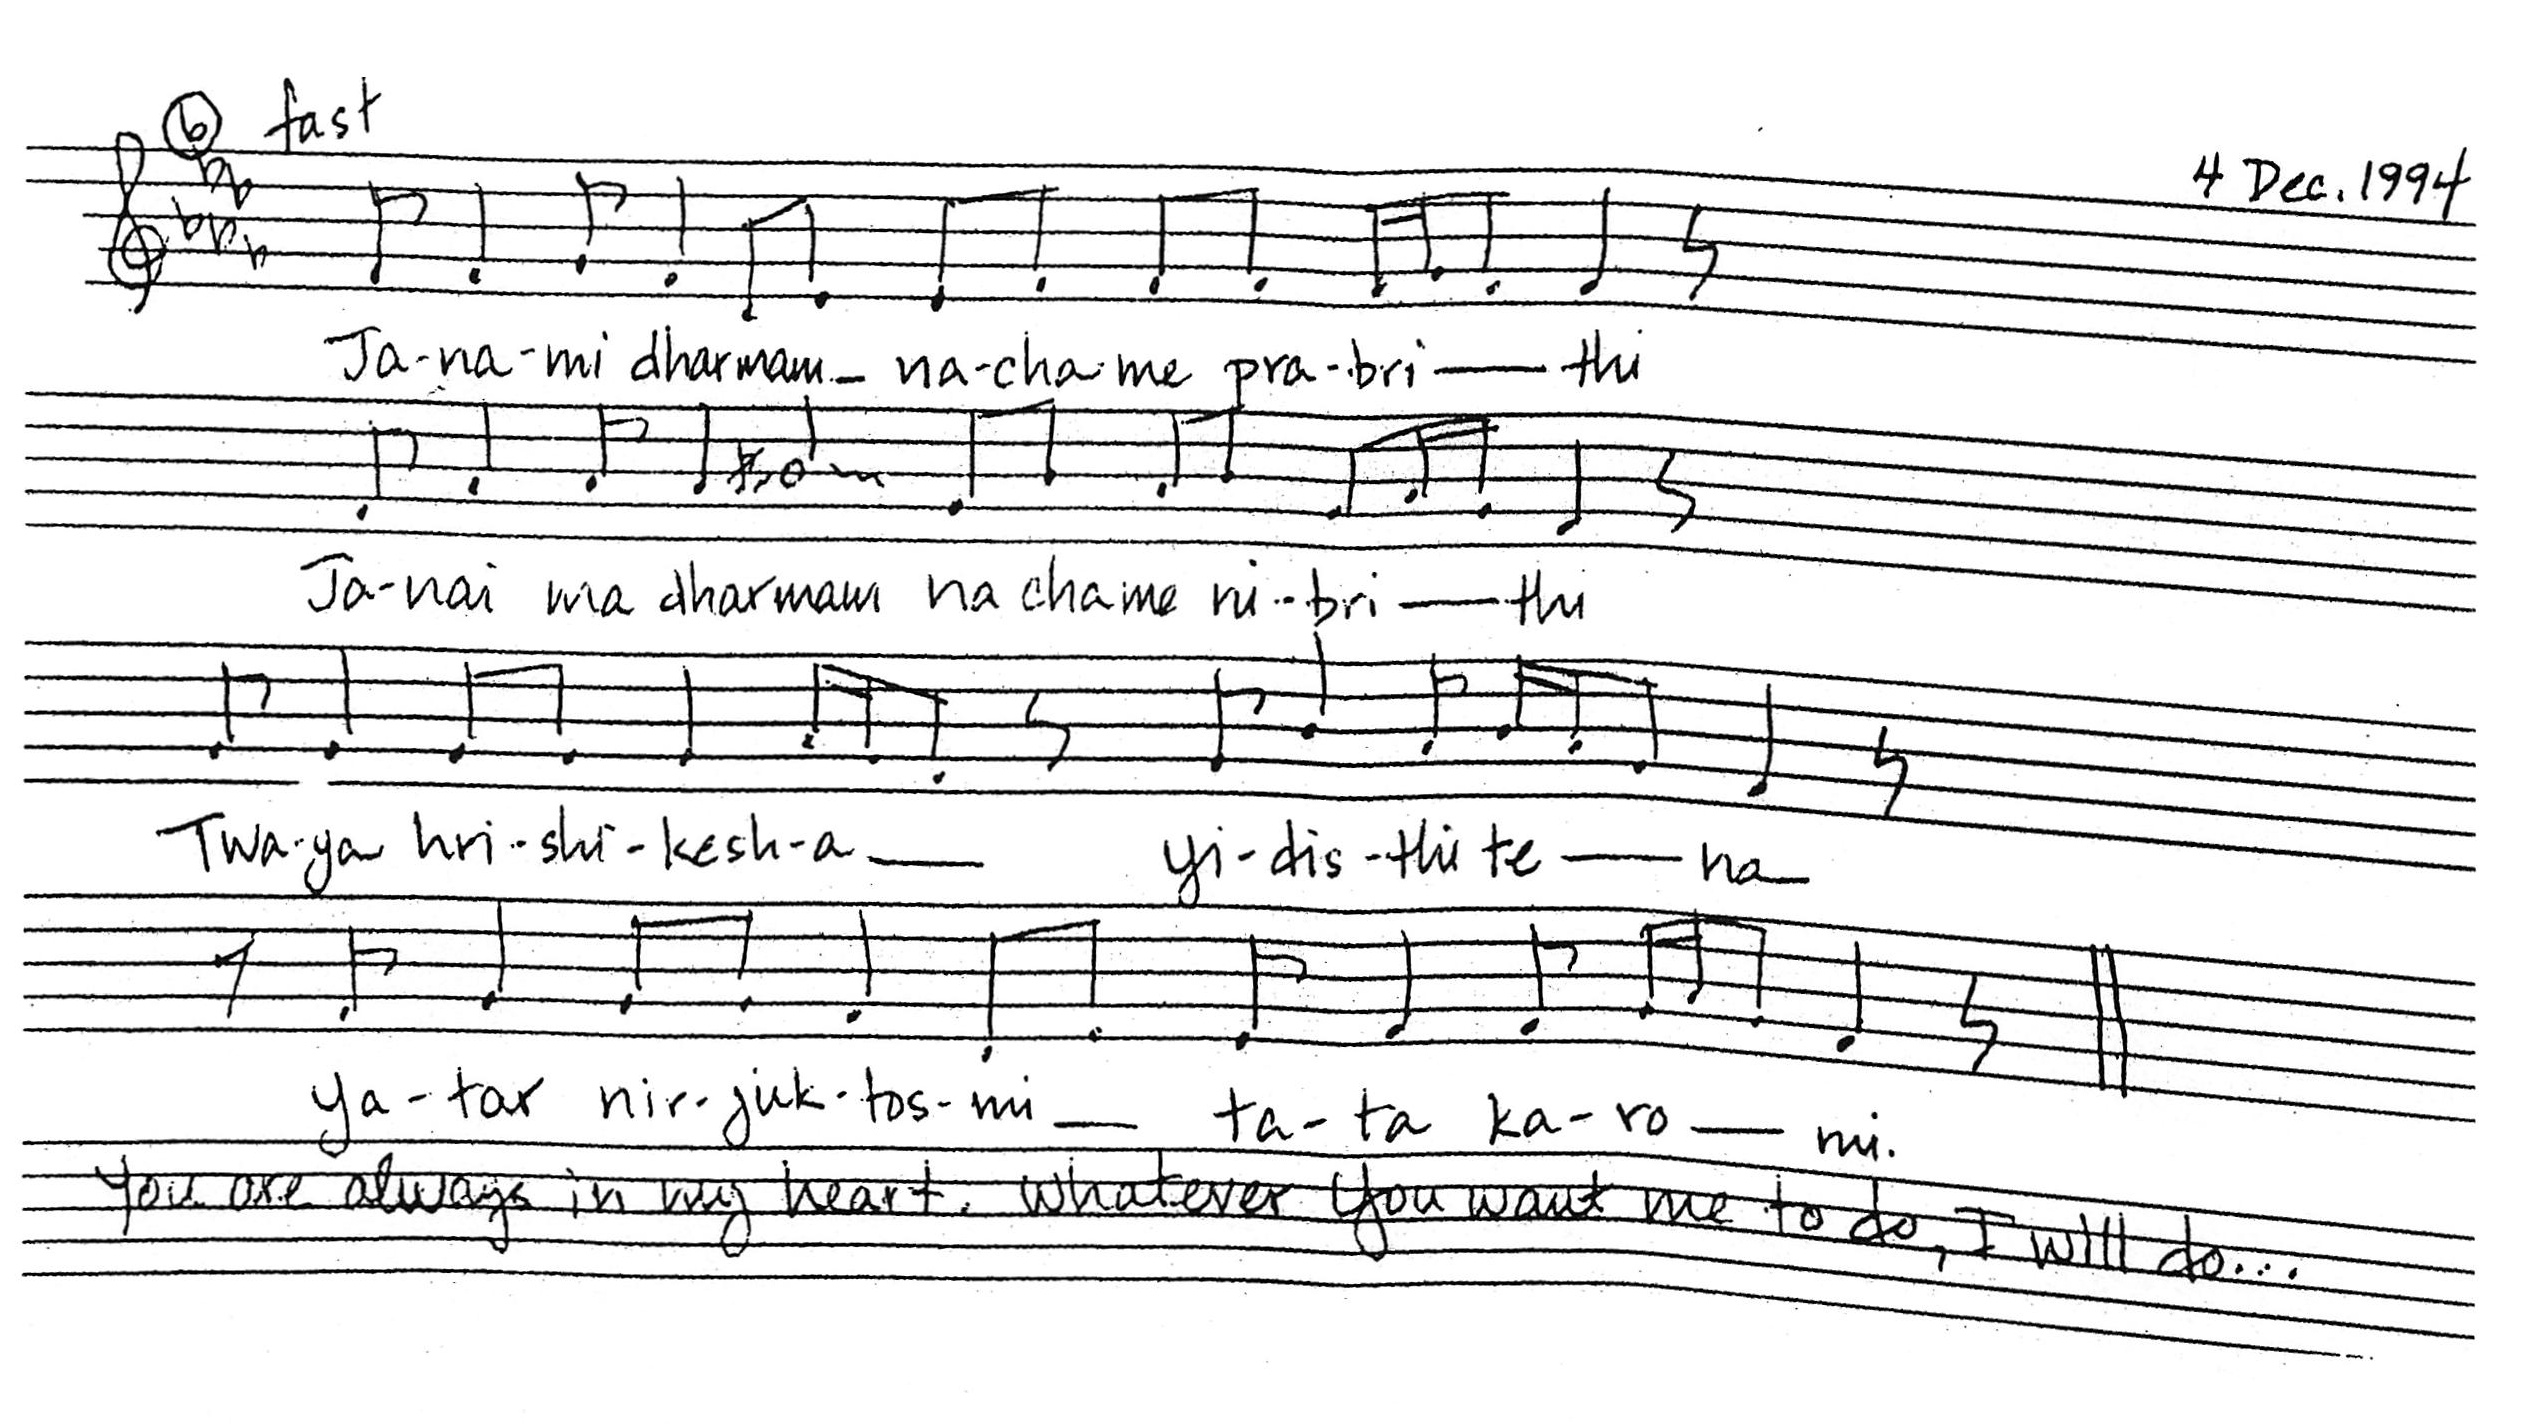 6 fast
4 Dec. 1994
Ja-na-mi dharmam_ na-cha-me pra-bri — thi
Ja-nai ma dharmam na chame ni-bri — thi
Twa-ya hri-shi-kesh-a — yi-dis-thi te — na
ya-tar nir-juk-tos-mi — ta-ta ka-ro — mi.
You are always in my heart. Whatever You want me to do, I will do...